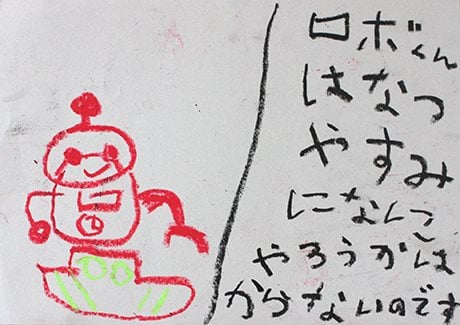 ロボくん
はなつ
やすみ
になにこ
やろうがは
からないのです